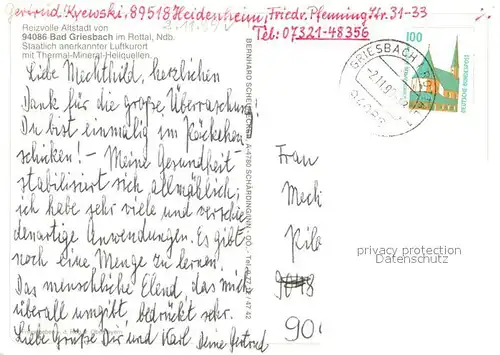 Gertrud Kyewski, 89518 Heidenheim, Friedr. Pfenning Str. 31-33
Tel: 07321-48356
Reizvolle Altstadt von
94086 Bad Griesbach im Rottal, Ndb.
Staatlich anerkannter Luftkurort
mit Thermal-Mineral-Heilquellen.
Liebe Mechthild, herzlichen
Dank für die große Überraschung
Du bist einmalig im Päckchen
schicken! - Meine Gesundheit
stabilisiert sich allmählich;
ich habe sehr viele und verschie
denartige Anwendungen. Es gibt
noch eine Menge zu lernen.
Das menschliche Elend, das mich
überall umgibt, bedrückt sehr.
Liebe Grüße Dir und Karl Deine Gertrud
BERNHARD
A-4780 SCHÄRDING/INN
GRIESBACH
100
DEUTSCHE BUNDESPOST
Frau
Mech
privacy protection
Datenschutz
90